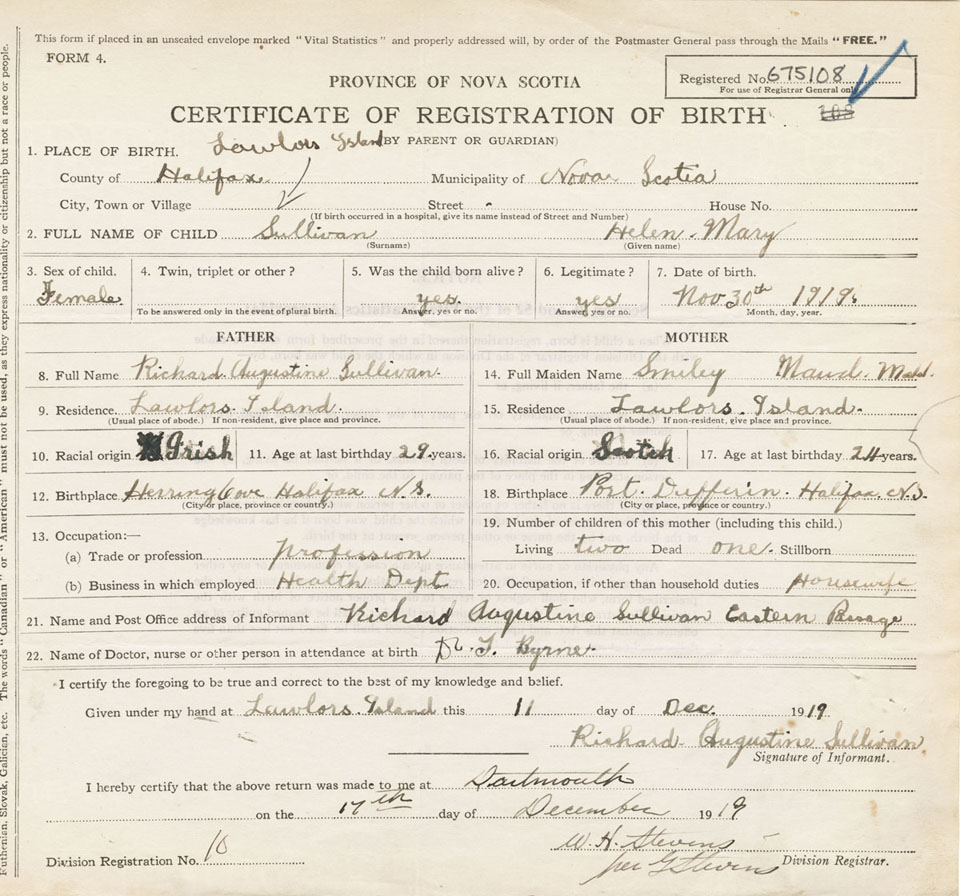 This form if placed in an unsealed envelope marked "Vital Statistics" and properly addressed will, by order of the Postmaster General pass through the Mails "FREE."
FORM 4.
Registered No. 675108
For use of Registrar General only
108
PROVINCE OF NOVA SCOTIA
CERTIFICATE OF REGISTRATION OF BIRTH
(BY PARENT OR GUARDIAN)
1. PLACE OF BIRTH. Lawlors Island
County of Halifax Municipality of Nova Scotia
City, Town or Village Street House No.
(If birth occurred in a hospital, give its name instead of Street and Number)
2. FULL NAME OF CHILD Sullivan Helen Mary
(Surname) (Given name)
3. Sex of child. 4. Twin, triplet or other? 5. Was the child born alive? 6. Legitimate? 7. Date of birth.
Female yes. yes Nov 30th 1919.
To be answered only in the event of plural birth. Answer, yes or no. Answer, yes or no. Month, day, year.
FATHER MOTHER
8. Full Name Richard Augustine Sullivan 14. Full Maiden Name Smiley Maud
9. Residence Lawlors Island. 15. Residence Lawlors Island.
(Usual place of abode.) If non-resident, give place and province. (Usual place of abode.) If non-resident, give place and province.
10. Racial origin Irish 11. Age at last birthday 29 years. 16. Racial origin Scotch 17. Age at last birthday 24 years.
12. Birthplace Herring Cove Halifax N.S. 18. Birthplace Port Dufferin. Halifax. N.S.
(City or place, province or country.) (City or place, province or country.)
13. Occupation:— 19. Number of children of this mother (including this child.)
(a) Trade or profession profession Living two Dead one. Stillborn
(b) Business in which employed Health Dept 20. Occupation, if other than household duties Housewife
21. Name and Post Office address of Informant Richard Augustine Sullivan Eastern Passage
22. Name of Doctor, nurse or other person in attendance at birth Dr. T. Byrne.
I certify the foregoing to be true and correct to the best of my knowledge and belief.
Given under my hand at Lawlors Island this 11 day of Dec. 1919
Richard Augustine Sullivan
Signature of Informant.
I hereby certify that the above return was made to me at Dartmouth
on the 17th day of December 1919
W. H. Stevens
per G Stevens
Division Registration No. 10 Division Registrar.
Ruthenian, Slovak, Galician, etc. The words "Canadian" or "American" must not be used, as they express nationality or citizenship but not a race or people.